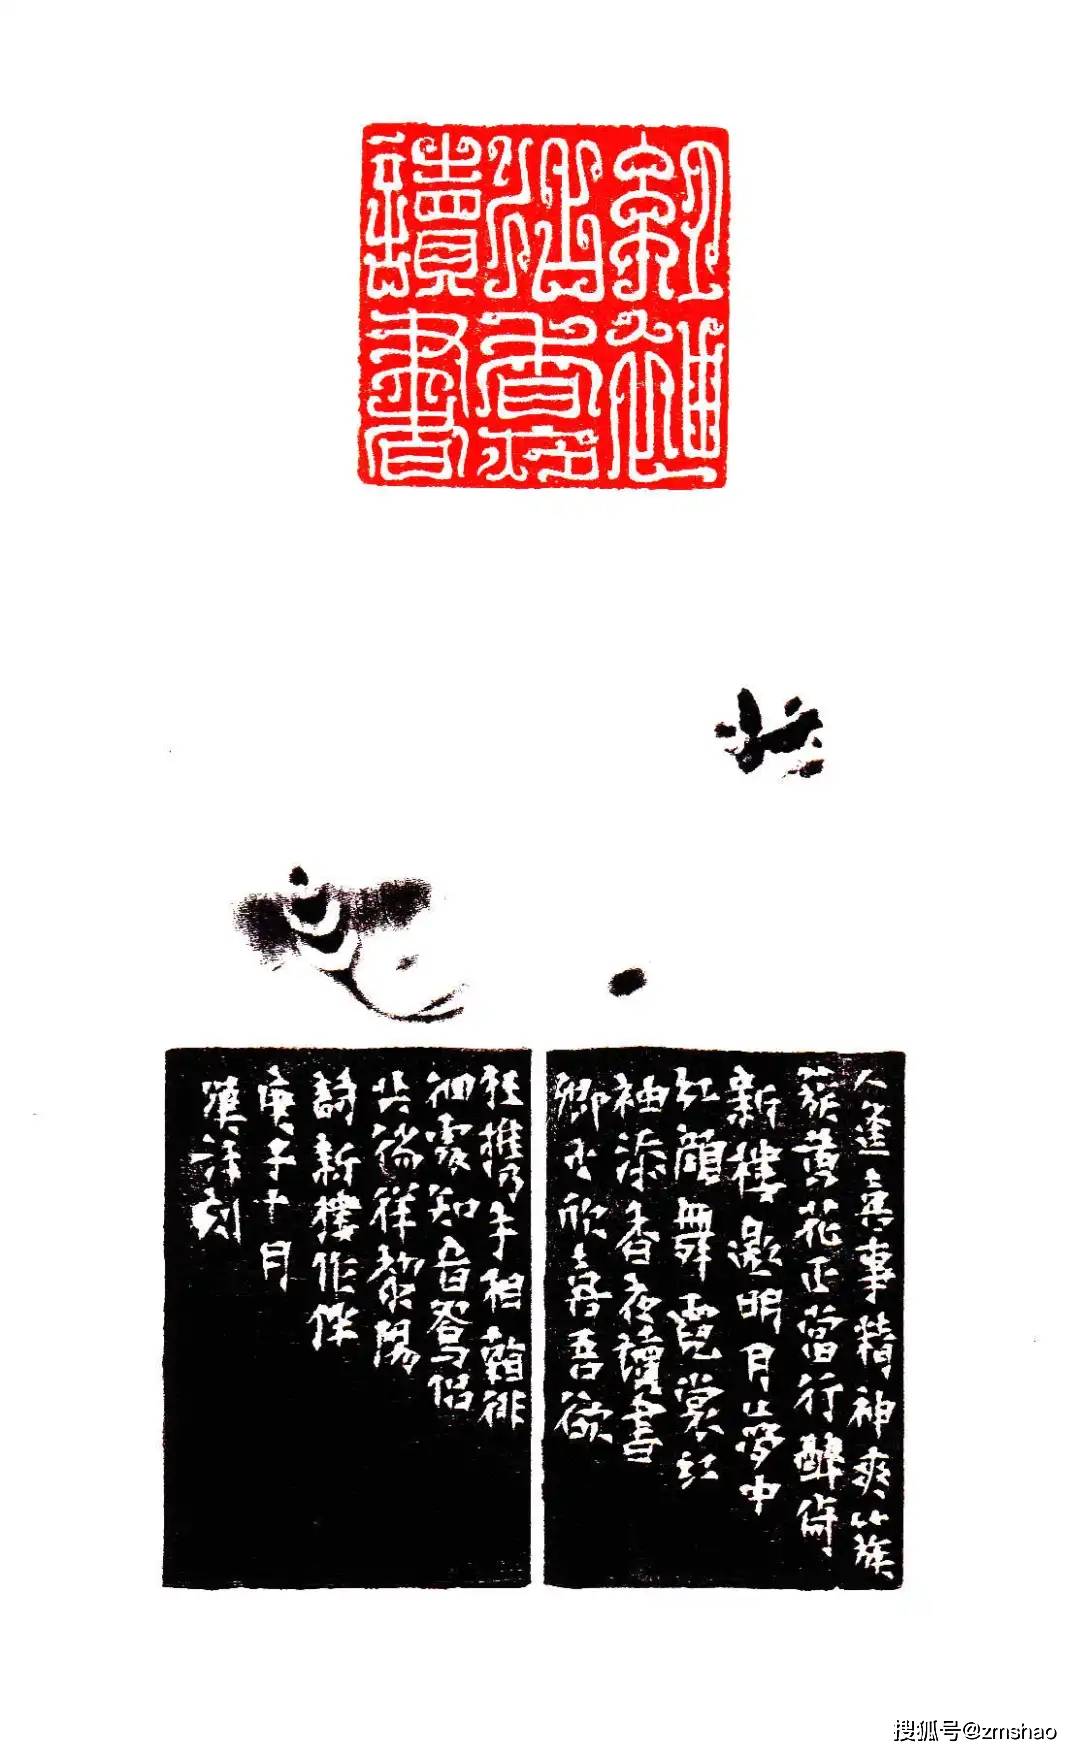 紅袖
添香夜
讀書
人逢喜事精神爽簇
簇黃花正當行醉倚
新樓邀明月夢中
紅顏舞霓裳紅
袖添香夜讀書
卿卿欣喜吾欲
狂攜手相
細處知音鴛侶
共徜徉 陽
詩新樓作
庚子十月
漢 刻
搜狐号@zmshao